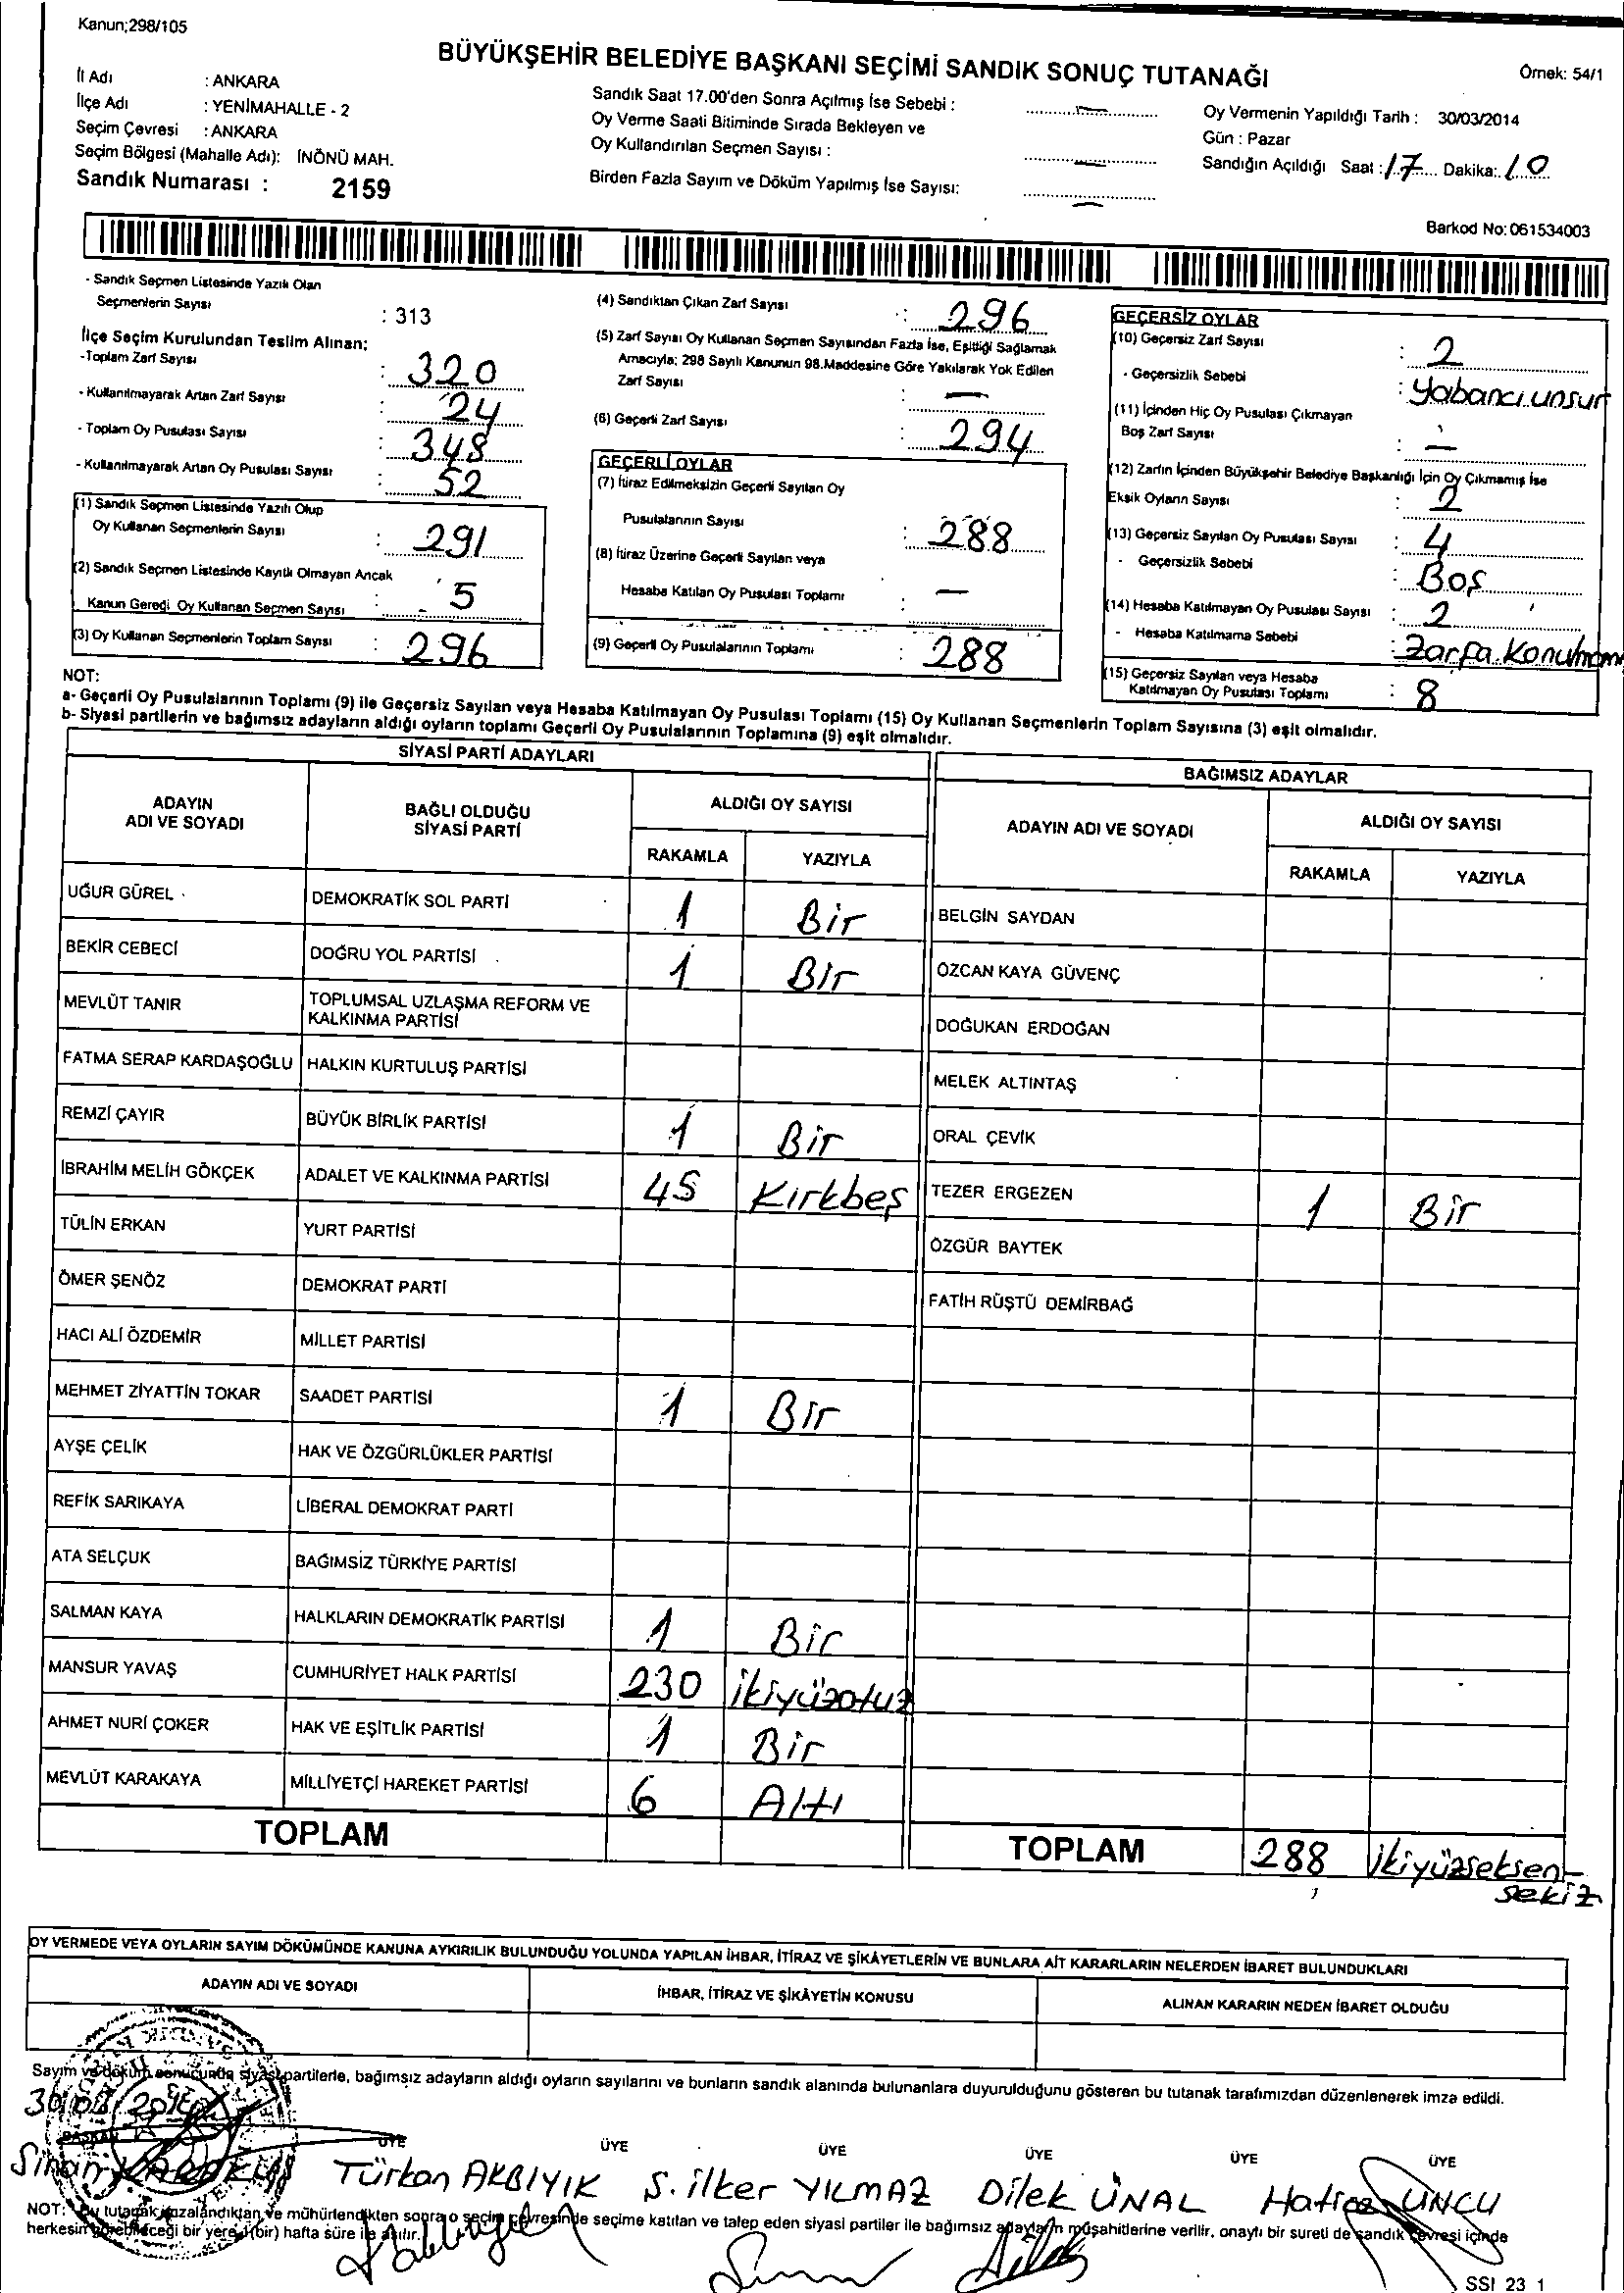 Kanun;298/105
BÜYÜKŞEHİR BELEDİYE BAŞKANI SEÇİMİ SANDIK SONUÇ TUTANAĞI
Örnek: 54/1
İl Adı : ANKARA
İlçe Adı : YENİMAHALLE - 2
Seçim Çevresi : ANKARA
Seçim Bölgesi (Mahalle Adı): İNÖNÜ MAH.
Sandık Numarası : 2159
Sandık Saat 17.00'den Sonra Açılmış İse Sebebi : —
Oy Verme Saati Bitiminde Sırada Bekleyen ve
Oy Kullandırılan Seçmen Sayısı : —
Birden Fazla Sayım ve Döküm Yapılmış İse Sayısı: —
Oy Vermenin Yapıldığı Tarih : 30/03/2014
Gün : Pazar
Sandığın Açıldığı Saat : 17 Dakika: 10
Barkod No: 061534003
- Sandık Seçmen Listesinde Yazılı Olan
Seçmenlerin Sayısı : 313
İlçe Seçim Kurulundan Teslim Alınan:
-Toplam Zarf Sayısı : 320
- Kullanılmayarak Artan Zarf Sayısı : 24
- Toplam Oy Pusulası Sayısı : 348
- Kullanılmayarak Artan Oy Pusulası Sayısı : 52
(1) Sandık Seçmen Listesinde Yazılı Olup
Oy Kullanan Seçmenlerin Sayısı : 291
(2) Sandık Seçmen Listesinde Kayıtlı Olmayan Ancak
Kanun Gereği Oy Kullanan Seçmen Sayısı : 5
(3) Oy Kullanan Seçmenlerin Toplam Sayısı : 296
(4) Sandıktan Çıkan Zarf Sayısı : 296
(5) Zarf Sayısı Oy Kullanan Seçmen Sayısından Fazla İse, Eşitliği Sağlamak
Amacıyla; 298 Sayılı Kanunun 98.Maddesine Göre Yakılarak Yok Edilen
Zarf Sayısı : —
(6) Geçerli Zarf Sayısı : 294
GEÇERLİ OYLAR
(7) İtiraz Edilmeksizin Geçerli Sayılan Oy
Pusulalarının Sayısı : 288
(8) İtiraz Üzerine Geçerli Sayılan veya
Hesaba Katılan Oy Pusulası Toplamı : —
(9) Geçerli Oy Pusulalarının Toplamı : 288
GEÇERSİZ OYLAR
(10) Geçersiz Zarf Sayısı : 2
- Geçersizlik Sebebi : Yabancı unsur
(11) İçinden Hiç Oy Pusulası Çıkmayan
Boş Zarf Sayısı : —
(12) Zarfın İçinden Büyükşehir Belediye Başkanlığı İçin Oy Çıkmamış İse
Eksik Oyların Sayısı : 2
(13) Geçersiz Sayılan Oy Pusulası Sayısı : 4
- Geçersizlik Sebebi : Boş
(14) Hesaba Katılmayan Oy Pusulası Sayısı : 2
- Hesaba Katılmama Sebebi : Zarfa
(15) Geçersiz Sayılan veya Hesaba
Katılmayan Oy Pusulası Toplamı : 8
NOT:
a- Geçerli Oy Pusulalarının Toplamı (9) ile Geçersiz Sayılan veya Hesaba Katılmayan Oy Pusulası Toplamı (15) Oy Kullanan Seçmenlerin Toplam Sayısına (3) eşit olmalıdır.
b- Siyasi partilerin ve bağımsız adayların aldığı oyların toplamı Geçerli Oy Pusulalarının Toplamına (9) eşit olmalıdır.
SİYASİ PARTİ ADAYLARI
ADAYIN ADI VE SOYADI
BAĞLI OLDUĞU SİYASİ PARTİ
ALDIĞI OY SAYISI
RAKAMLA YAZIYLA
UĞUR GÜREL DEMOKRATİK SOL PARTİ 1 Bir
BEKİR CEBECİ DOĞRU YOL PARTİSİ 1 Bir
MEVLÜT TANIR TOPLUMSAL UZLAŞMA REFORM VE
KALKINMA PARTİSİ
FATMA SERAP KARDAŞOĞLU HALKIN KURTULUŞ PARTİSİ
REMZİ ÇAYIR BÜYÜK BİRLİK PARTİSİ 1 Bir
İBRAHİM MELİH GÖKÇEK ADALET VE KALKINMA PARTİSİ 45 Kırkbeş
TÜLİN ERKAN YURT PARTİSİ
ÖMER ŞENÖZ DEMOKRAT PARTİ
HACI ALİ ÖZDEMİR MİLLET PARTİSİ
MEHMET ZİYATTİN TOKAR SAADET PARTİSİ 1 Bir
AYŞE ÇELİK HAK VE ÖZGÜRLÜKLER PARTİSİ
REFİK SARIKAYA LİBERAL DEMOKRAT PARTİ
ATA SELÇUK BAĞIMSIZ TÜRKİYE PARTİSİ
SALMAN KAYA HALKLARIN DEMOKRATİK PARTİSİ 1 Bir
MANSUR YAVAŞ CUMHURİYET HALK PARTİSİ 230 İkiyüzotuz
AHMET NURİ ÇOKER HAK VE EŞİTLİK PARTİSİ 1 Bir
MEVLÜT KARAKAYA MİLLİYETÇİ HAREKET PARTİSİ 6 Altı
TOPLAM
BAĞIMSIZ ADAYLAR
ADAYIN ADI VE SOYADI
ALDIĞI OY SAYISI
RAKAMLA YAZIYLA
BELGİN SAYDAN
ÖZCAN KAYA GÜVENÇ
DOĞUKAN ERDOĞAN
MELEK ALTINTAŞ
ORAL ÇEVİK
TEZER ERGEZEN 1 Bir
ÖZGÜR BAYTEK
FATİH RÜŞTÜ DEMİRBAĞ
TOPLAM 288 İkiyüzseksen-
sekiz
OY VERMEDE VEYA OYLARIN SAYIM DÖKÜMÜNDE KANUNA AYKIRILIK BULUNDUĞU YOLUNDA YAPILAN İHBAR, İTİRAZ VE ŞİKÂYETLERİN VE BUNLARA AİT KARARLARIN NELERDEN İBARET BULUNDUKLARI
ADAYIN ADI VE SOYADI
İHBAR, İTİRAZ VE ŞİKÂYETİN KONUSU
ALINAN KARARIN NEDEN İBARET OLDUĞU
Sayım ve döküm sonucunda siyasi partilerle, bağımsız adayların aldığı oyların sayılarını ve bunların sandık alanında bulunanlara duyurulduğunu gösteren bu tutanak tarafımızdan düzenlenerek imza edildi.
30/03/2014
BAŞKAN ÜYE ÜYE ÜYE ÜYE ÜYE ÜYE
Sinan Türkan AKBIYIK S. ilker YILMAZ Dilek ÜNAL Hatice UNCU
NOT: Bu tutanak imzalandıktan ve mühürlendikten sonra o seçim çevresinde seçime katılan ve talep eden siyasi partiler ile bağımsız adayların müşahitlerine verilir, onaylı bir sureti de sandık çevresi içinde
herkesin görebileceği bir yere 1(bir) hafta süre ile asılır.
SSI 23 1